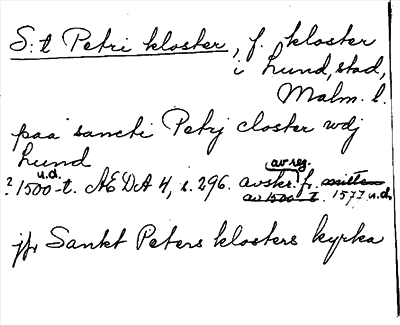 S:t Petri kloster, f. kloster
i Lund, stad,
Malm. l.
paa sancti Petrj closter wdj
Lund
u.d. av reg.
? 1500-t. ÆDA 4, s. 296. avskr. fr. mitten
av 1500-t. 1577 u.d.
jfr Sankt Peters klosters kyrka